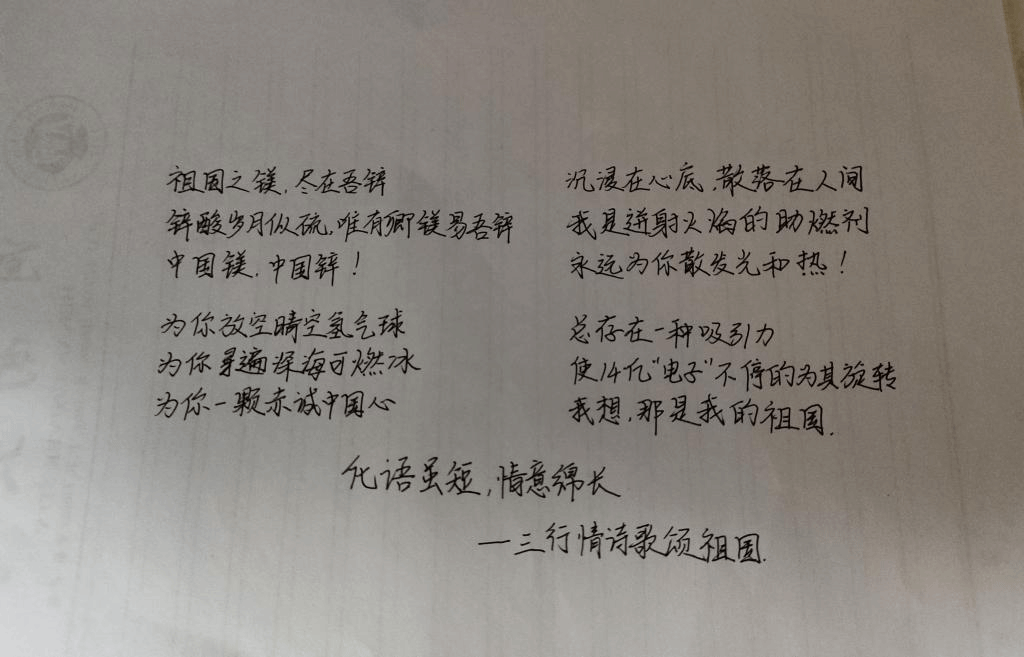 祖国之镁,尽在吾锌
锌酸岁月似硫,唯有卿镁易吾锌
中国镁,中国锌!
为你放空晴空氢气球
为你寻遍深海可燃冰
为你一颗赤诚中国心
沉浸在心底,散落在人间
我是迸射火焰的助燃剂
永远为你散发光和热!
总存在一种吸引力
使14亿"电子"不停的为其旋转
我想,那是我的祖国.
化语虽短,情意绵长
—三行情诗歌颂祖国.